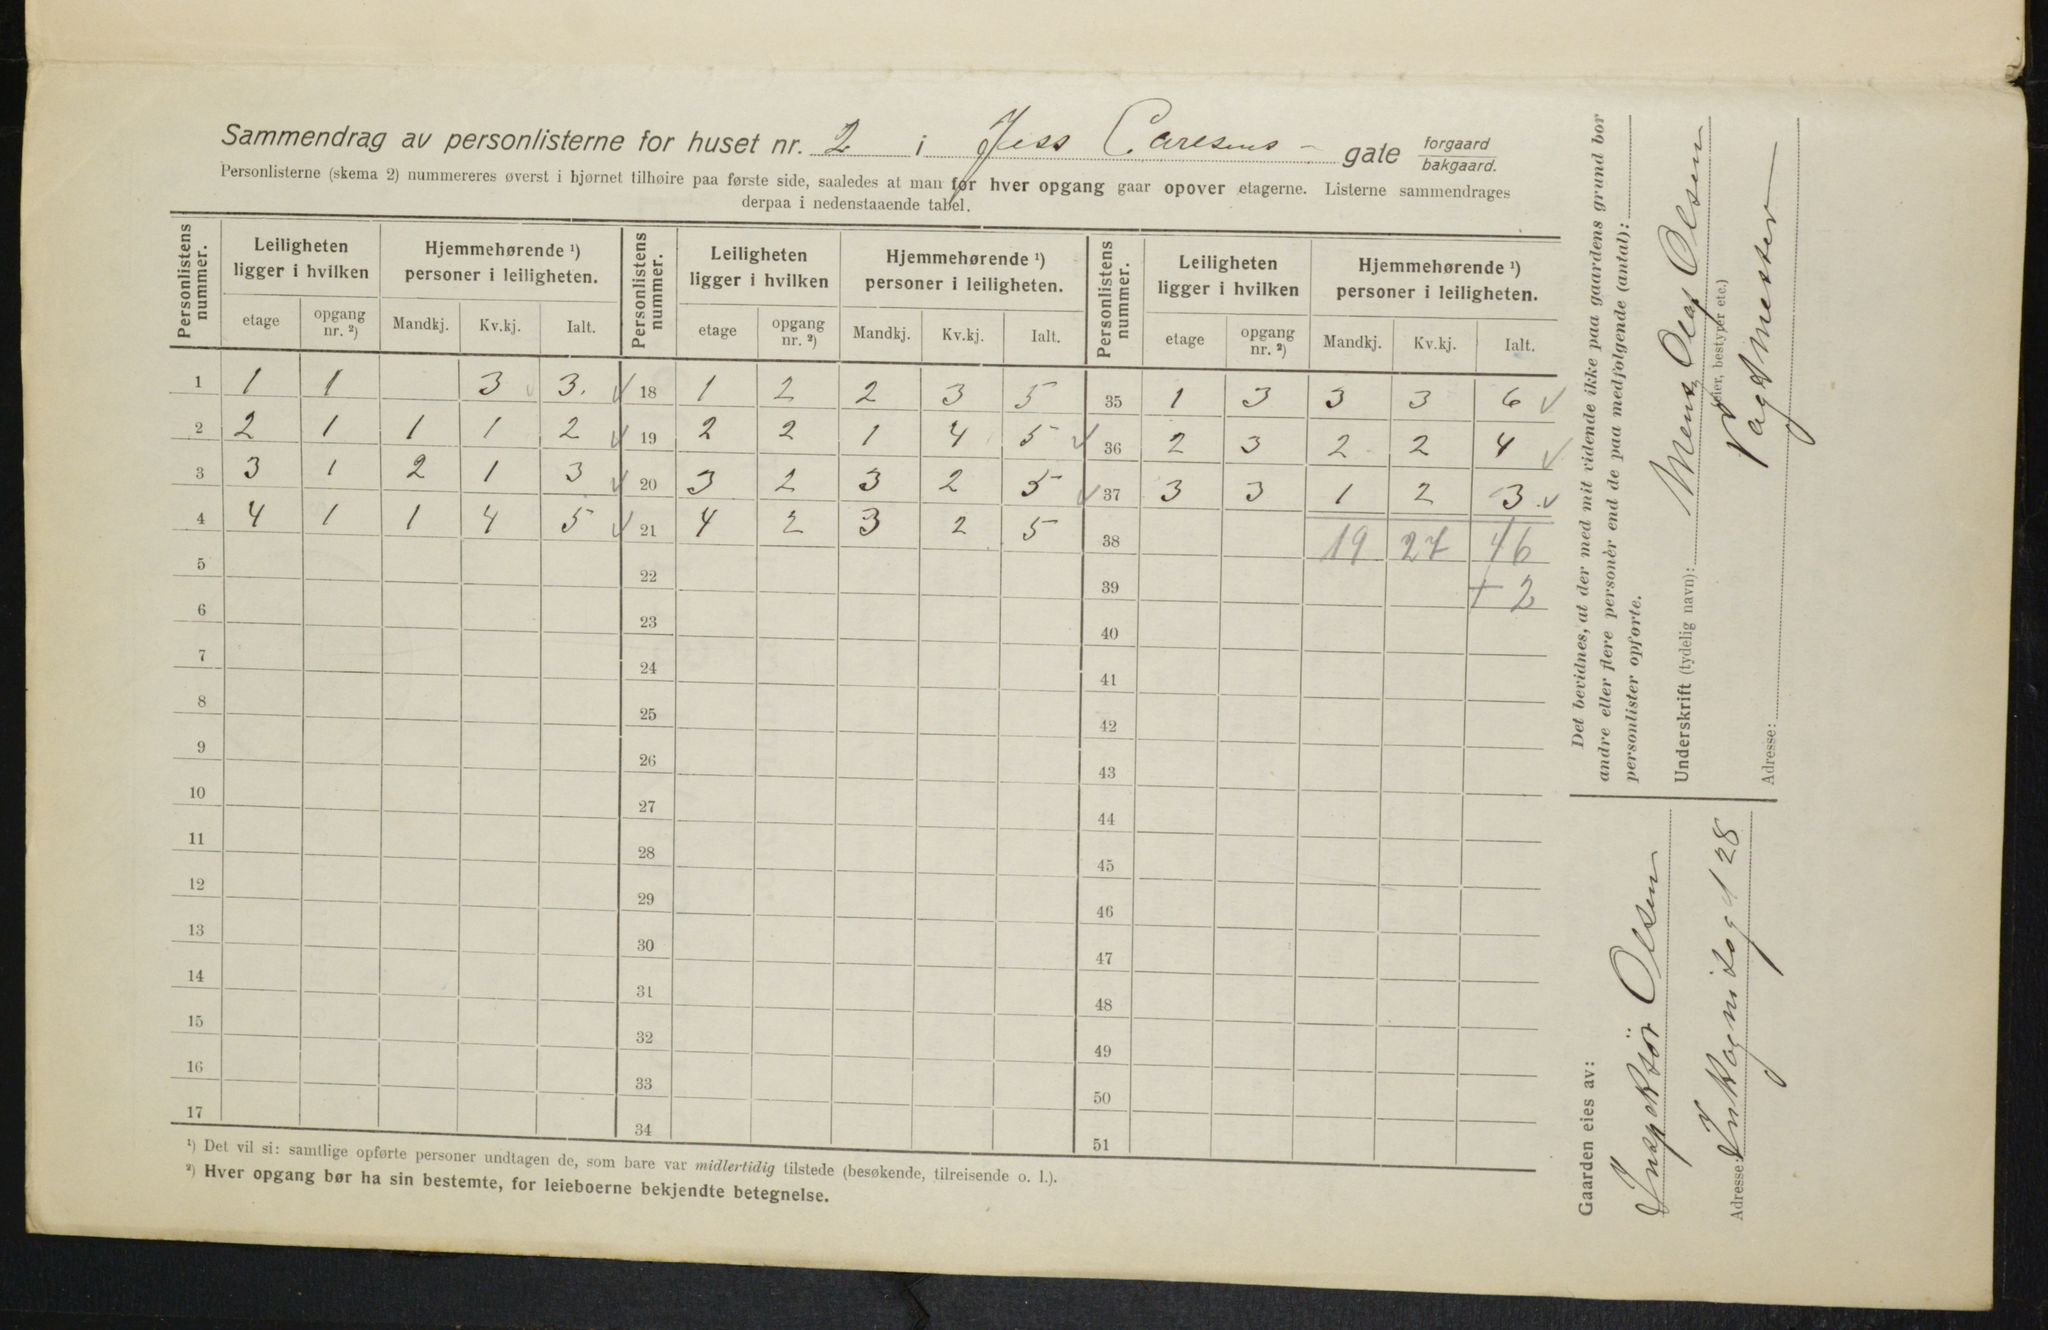 Sammendrag av personlisterne for huset nr. 2 i Jess Carlsens - gate forgaard bakgaard.
Personlisterne (skema 2) nummereres øverst i hjørnet tilhøire paa første side, saaledes at man før hver opgang gaar opover etagerne. Listerne sammendrages
derpaa i nedenstaaende tabel.
Personlistens nummer. Leiligheten ligger i hvilken Hjemmehørende ¹) personer i leiligheten. Personlistens nummer. Leiligheten ligger i hvilken Hjemmehørende ¹) personer i leiligheten. Personlistens nummer. Leiligheten ligger i hvilken Hjemmehørende ¹) personer i leiligheten.
etage opgang nr. ²) Mandkj. Kv.kj. Ialt. etage opgang nr. ²) Mandkj. Kv.kj. Ialt. etage opgang nr. ²) Mandkj. Kv.kj. Ialt.
1 1 1 3 3. √ 18 1 2 2 3 5 35 1 3 3 3 6 √
2 2 1 1 1 2 √ 19 2 2 1 4 5 √ 36 2 3 2 2 4 √
3 3 1 2 1 3 √ 20 3 2 3 2 5 √ 37 3 3 1 2 3 √
4 4 1 1 4 5 √ 21 4 2 3 2 5 38 19 27 46
5 22 39 + 2
6 23 40
7 24 41
8 25 42
9 26 43
10 27 44
11 28 45
12 29 46
13 30 47
14 31 48
15 32 49
16 33 50
17 34 51
¹) Det vil si: samtlige opførte personer undtagen de, som bare var midlertidig tilstede (besøkende, tilreisende o. l.).
²) Hver opgang bør ha sin bestemte, for leieboerne bekjendte betegnelse.
Det bevidnes, at der med mit vidende ikke paa gaardens grund bor
andre eller flere personer end de paa medfølgende (antal):
personlister opførte.
Underskrift (tydelig navn): Olaf Olsen
(eier, bestyrer etc.)
Vagtmester
Adresse:
Gaarden eies av:
Inspektör Olsen
Adresse: Inkognitogd 28